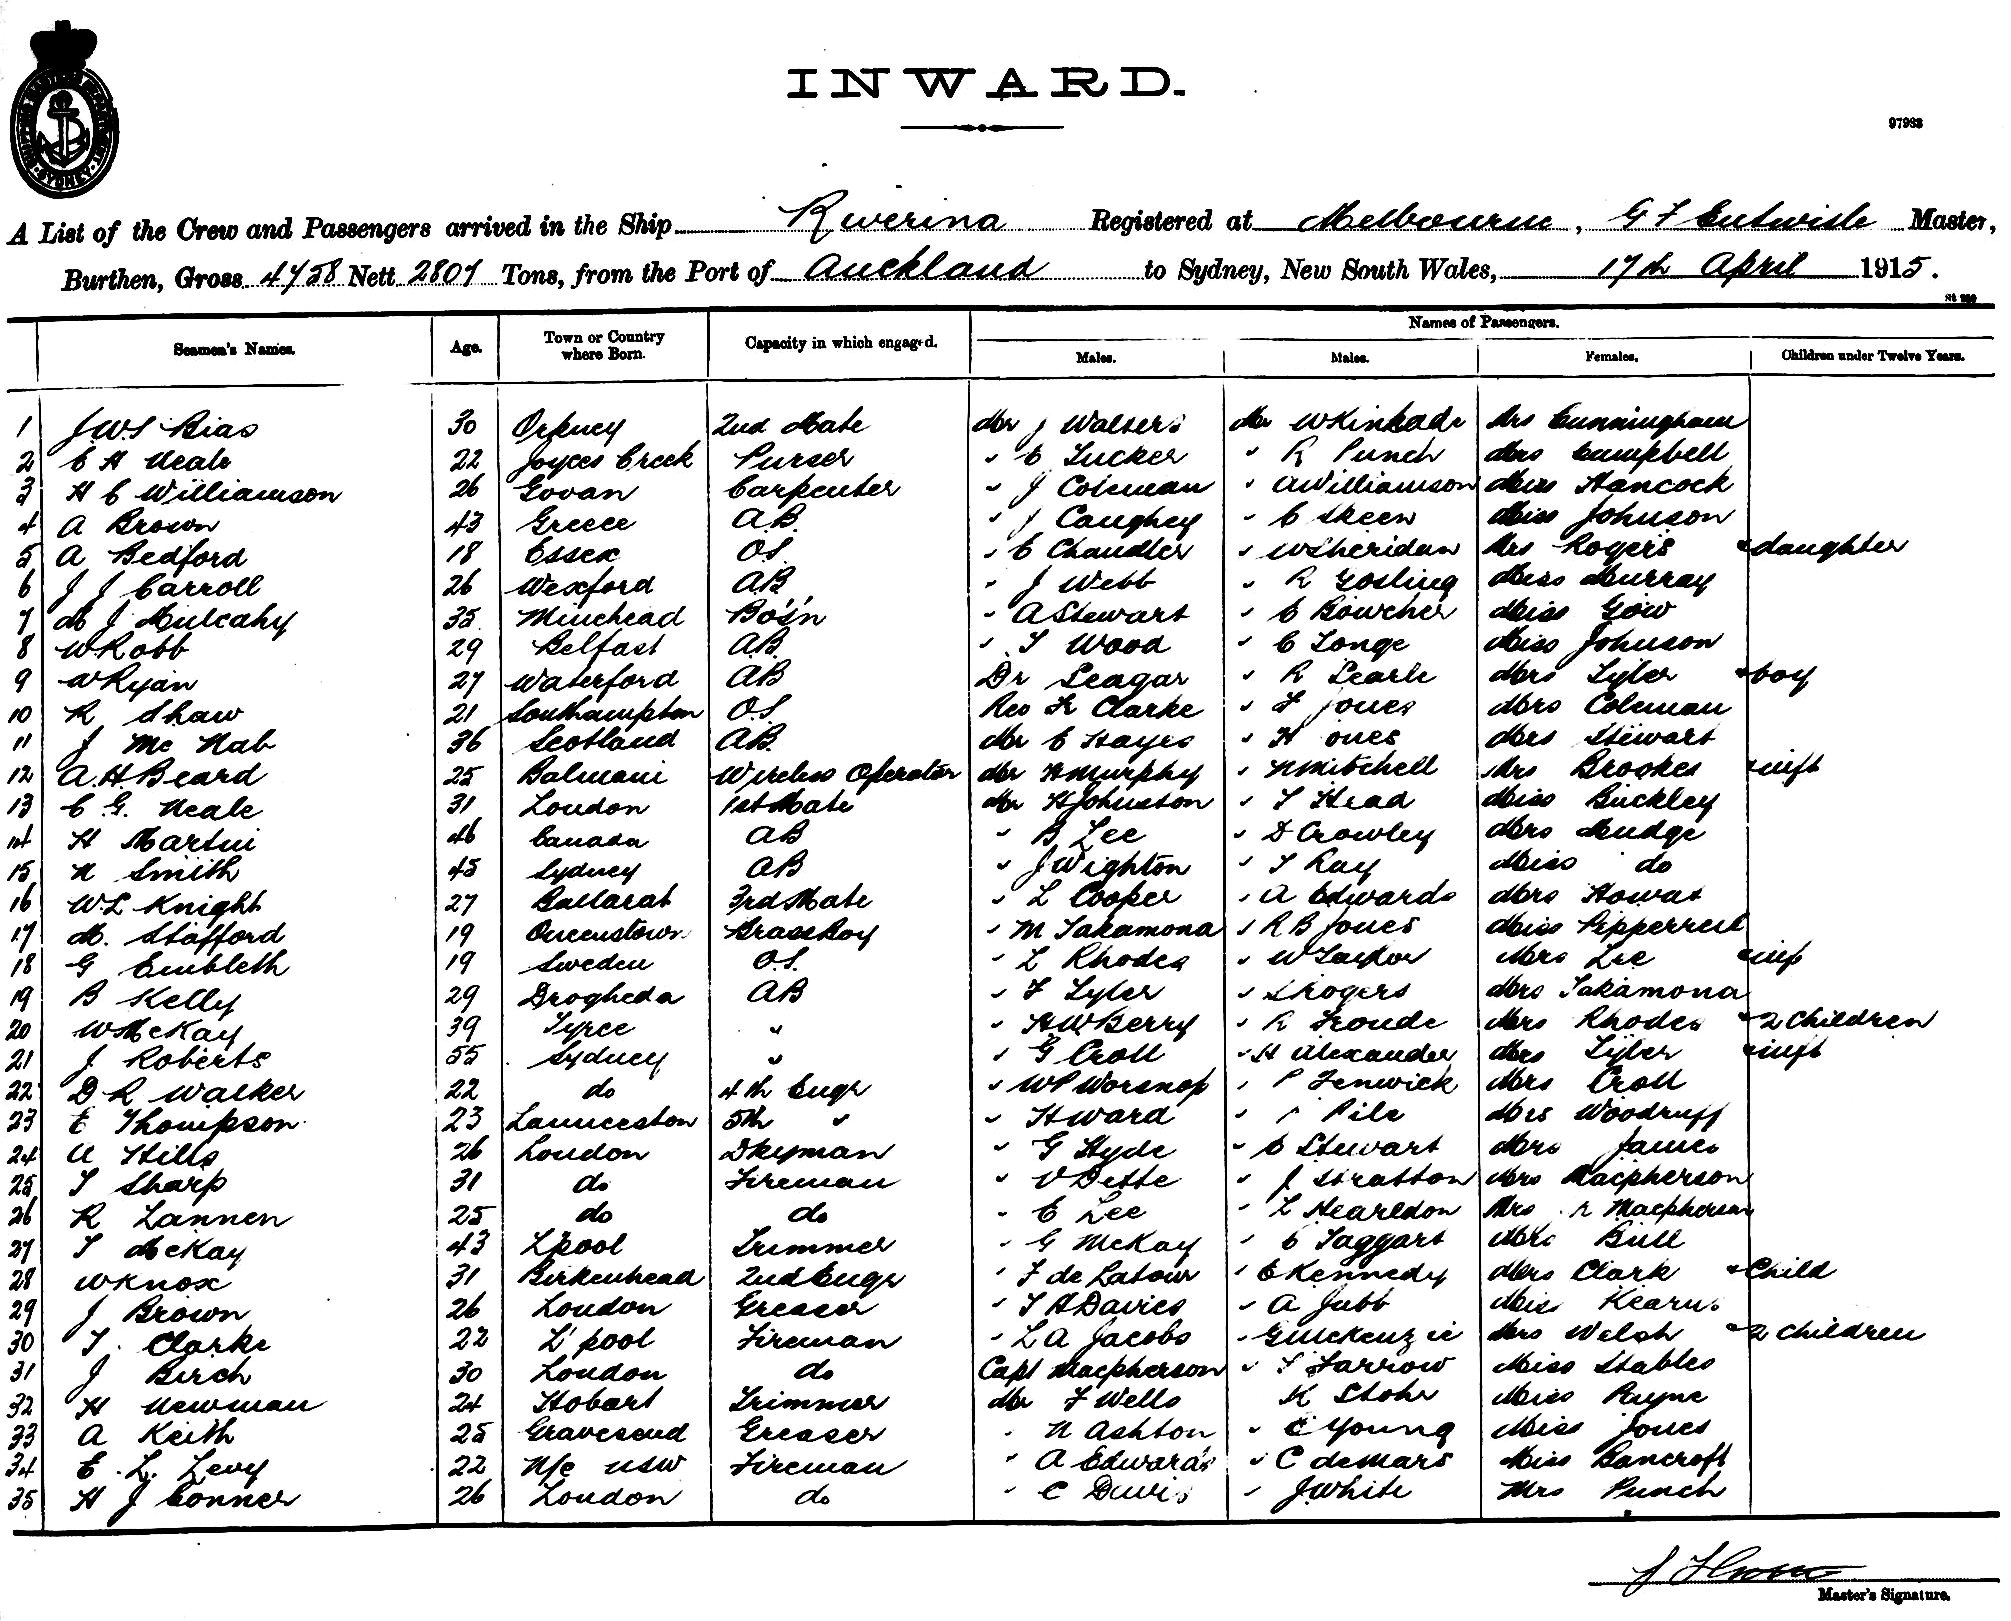 INWARD.
97983
A List of the Crew and Passengers arrived in the Ship Riverina Registered at Melbourne, G F Entwisle Master,
Burthen, Gross 4758 Nett 2801 Tons, from the Port of Auckland to Sydney, New South Wales, 17th April 1915.
Seamen's Names. Age. Town or Country where Born. Capacity in which engaged. Names of Passengers.
Males. Males. Females. Children under Twelve Years.
1 J.W.S Bias 30 Orkney 2nd Mate Mr J Walters Mr W Kinkade Mrs Cunningham
2 C H Neale 22 Joyces Creek Purser " C Tucker " R Punch Mrs Campbell
3 H C Williamson 26 Govan Carpenter " J Coleman " A Williamson Miss Hancock
4 A Brown 43 Greece A.B. " J Caughey " C Skeen Miss Johnson
5 A Bedford 18 Essex O.S. " C Chandler " W Sheridan Mrs Rogers & daughter
6 J J Carroll 26 Wexford AB " J Webb " R Gosling Miss Murray
7 M J Mulcahy 35 Minehead Bo's'n " A Stewart " C Bowcher Miss Gow
8 W Robb 29 Belfast A.B. " T Wood " C Longe Miss Johnson
9 W Ryan 27 Waterford AB Dr Seagar " R Searle Mrs Tyler & boy
10 R Shaw 21 Southampton O.S. Rev Fr Clarke " F Jones Mrs Coleman
11 J McNab 36 Scotland A.B. Mr C Hayes " H ones Mrs Stewart
12 A.H. Beard 25 Balmain Wireless Operator Mr H Murphy " N Mitchell Mrs Brookes & inft
13 C G. Neale 31 London 1st Mate Mr H Johnston " T Head Miss Buckley
14 H Martini 46 Canada AB " B Lee " D Crowley Mrs Mudge
15 N Smith 45 Sydney AB " J Wighton " T Ray Miss do
16 W.L Knight 27 Ballarat 3rd Mate " L Cooper " A Edwards Mrs Howat
17 M. Stafford 19 Queenstown Brass Boy " M Takamona " R B Jones Miss Pipperrell
18 G Embleth 19 Sweden O.S. " L Rhodes " W Taylor Mrs Lee & inft
19 B Kelly 29 Drogheda AB " F Tyler " S Rogers Mrs Takamona
20 W McKay 39 Tyree " " H W Berry " R Froude Mrs Rhodes & 2 Children
21 J Roberts 55 Sydney " " G Croll " H Alexander Mrs Tyler & inft
22 D R Walker 22 do 4th Engr " W P Worsnop " P Fenwick Mrs Croll
23 E Thompson 23 Launceston 5th " " H Ward " Pile Mrs Woodruff
24 A Hills 26 London Dkeyman " G Hyde " C Stewart Mrs James
25 T Sharp 31 do Fireman " V Dette " J Stratton Mrs Macpherson
26 R Lannen 25 do do " E Lee " L Hearldon Mrs R Macpherson
27 T McKay 43 L'pool Trimmer " G McKay " C Taggart Mrs Bull
28 W Knox 31 Birkenhead 2nd Engr " F de Latour " E Kennedy Mrs Clark & Child
29 J Brown 26 London Greaser " T H Davies " A Jubb Miss Kearns
30 T. Clarke 22 L'pool Fireman " L A Jacobs " G McKenzie Mrs Welsh & 2 children
31 J Birch 30 London do Capt Macpherson " T Farrow Miss Stables
32 H Newman 24 Hobart Trimmer Mr F Wells K Stohr Miss Payne
33 A Keith 25 Gravesend Greaser " N Ashton " C Young Miss Jones
34 E. L. Levy 22 N/c NSW Fireman " A Edwards " C deMars Miss Bancroft
35 H J Conner 26 London do " C Davis " J White Mrs Punch
Master's Signature.